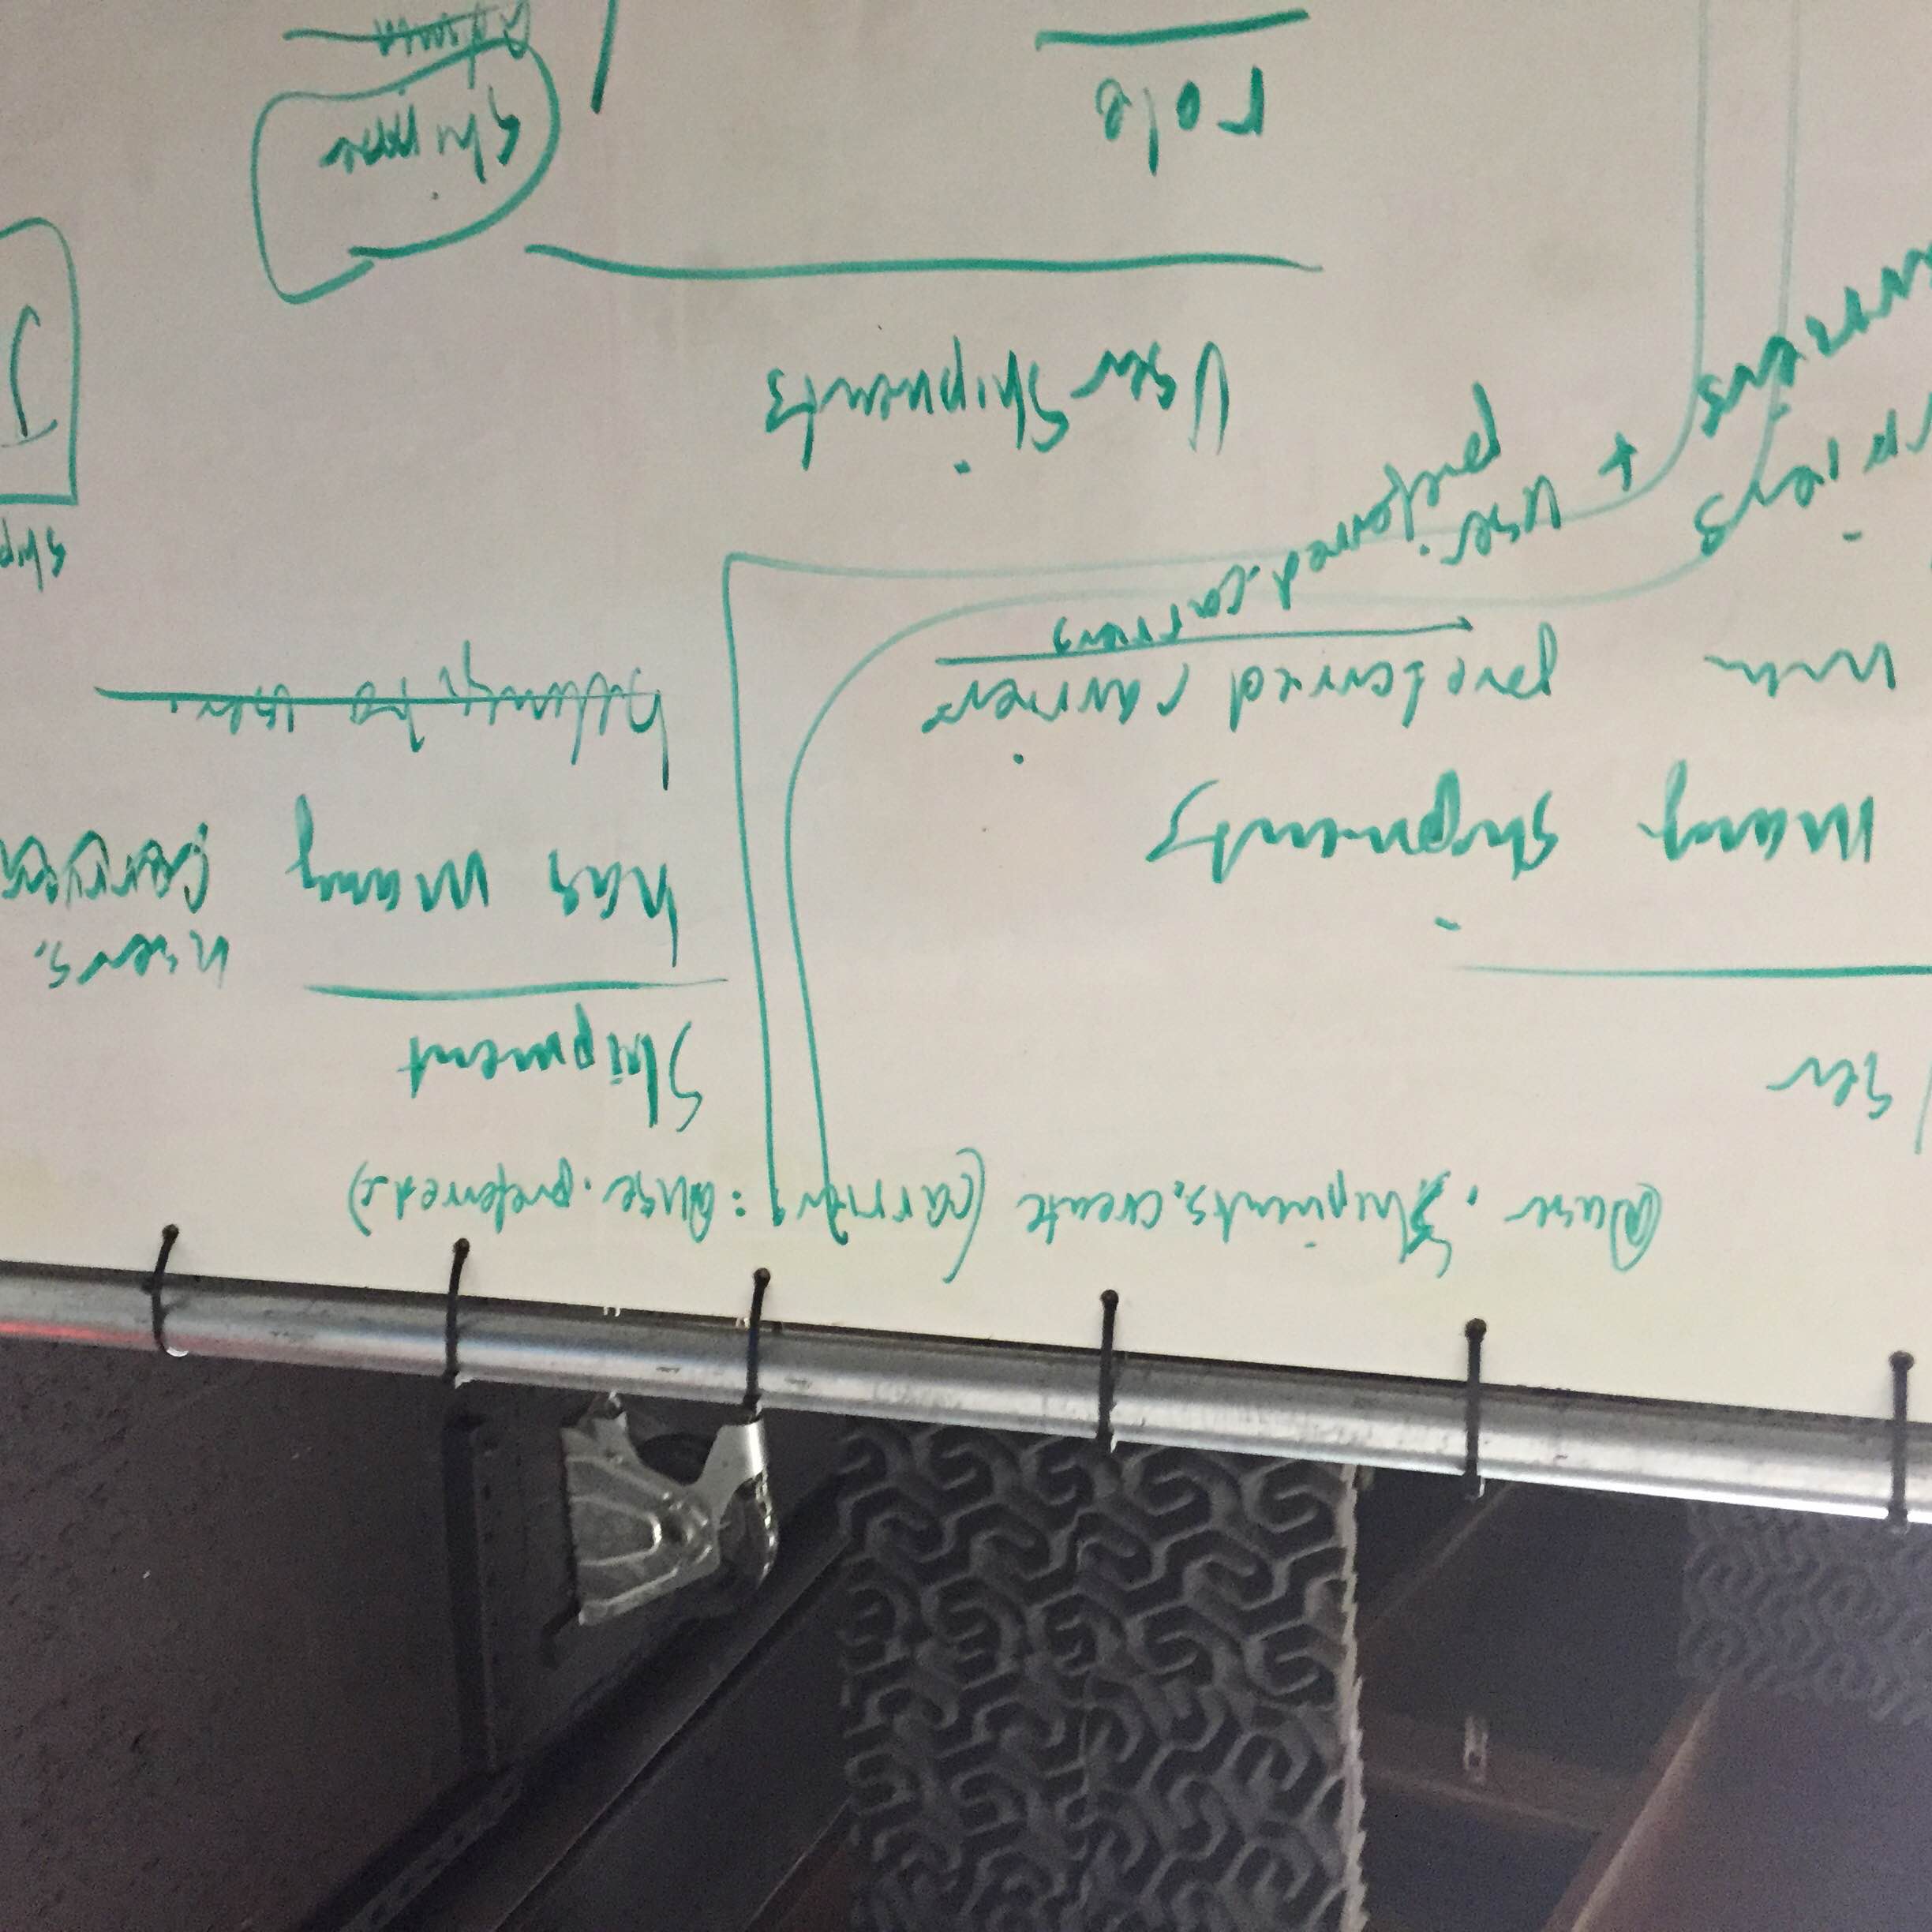 @user.Shipments.create (carriers : @use.preferred_c)
User
many shipments
preferred carriers
+ user.
preferred.carriers
rriers
arriers
Shipment
has many users,
belongs to user.
UserShipments
role
shipper
admin
ship
J